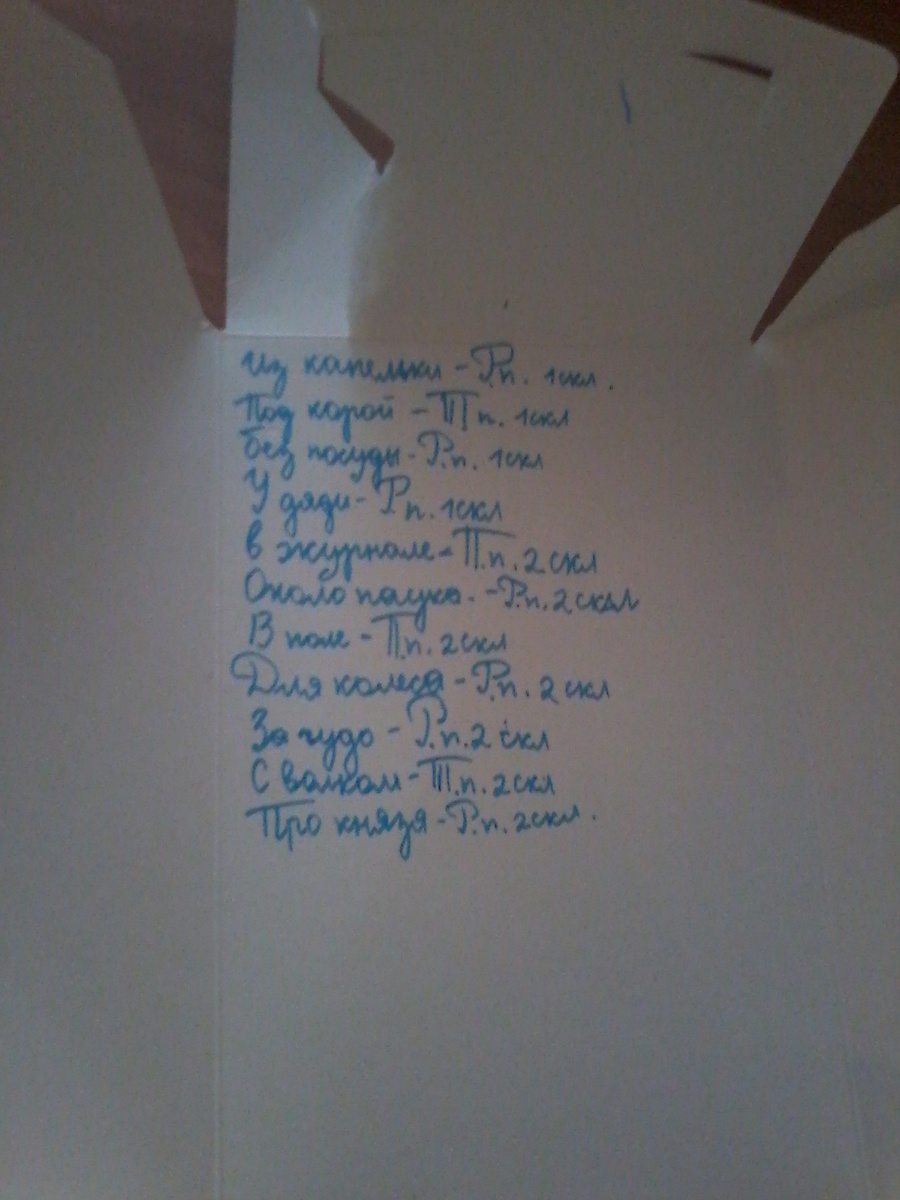 Из капельки - Р.п. 1скл.
Под корой - Тп. 1скл
без посуды - Р.п. 1скл
У дяди - Рп. 1скл
в журнале - П.п. 2 скл
Около паука. - Р.п. 2 скл
В поле - П.п. 2скл
Для колеса - Р.п. 2 скл
За чудо - Р.п. 2 скл
С волком - Т.п. 2скл
Про князя - Р.п. 2скл.